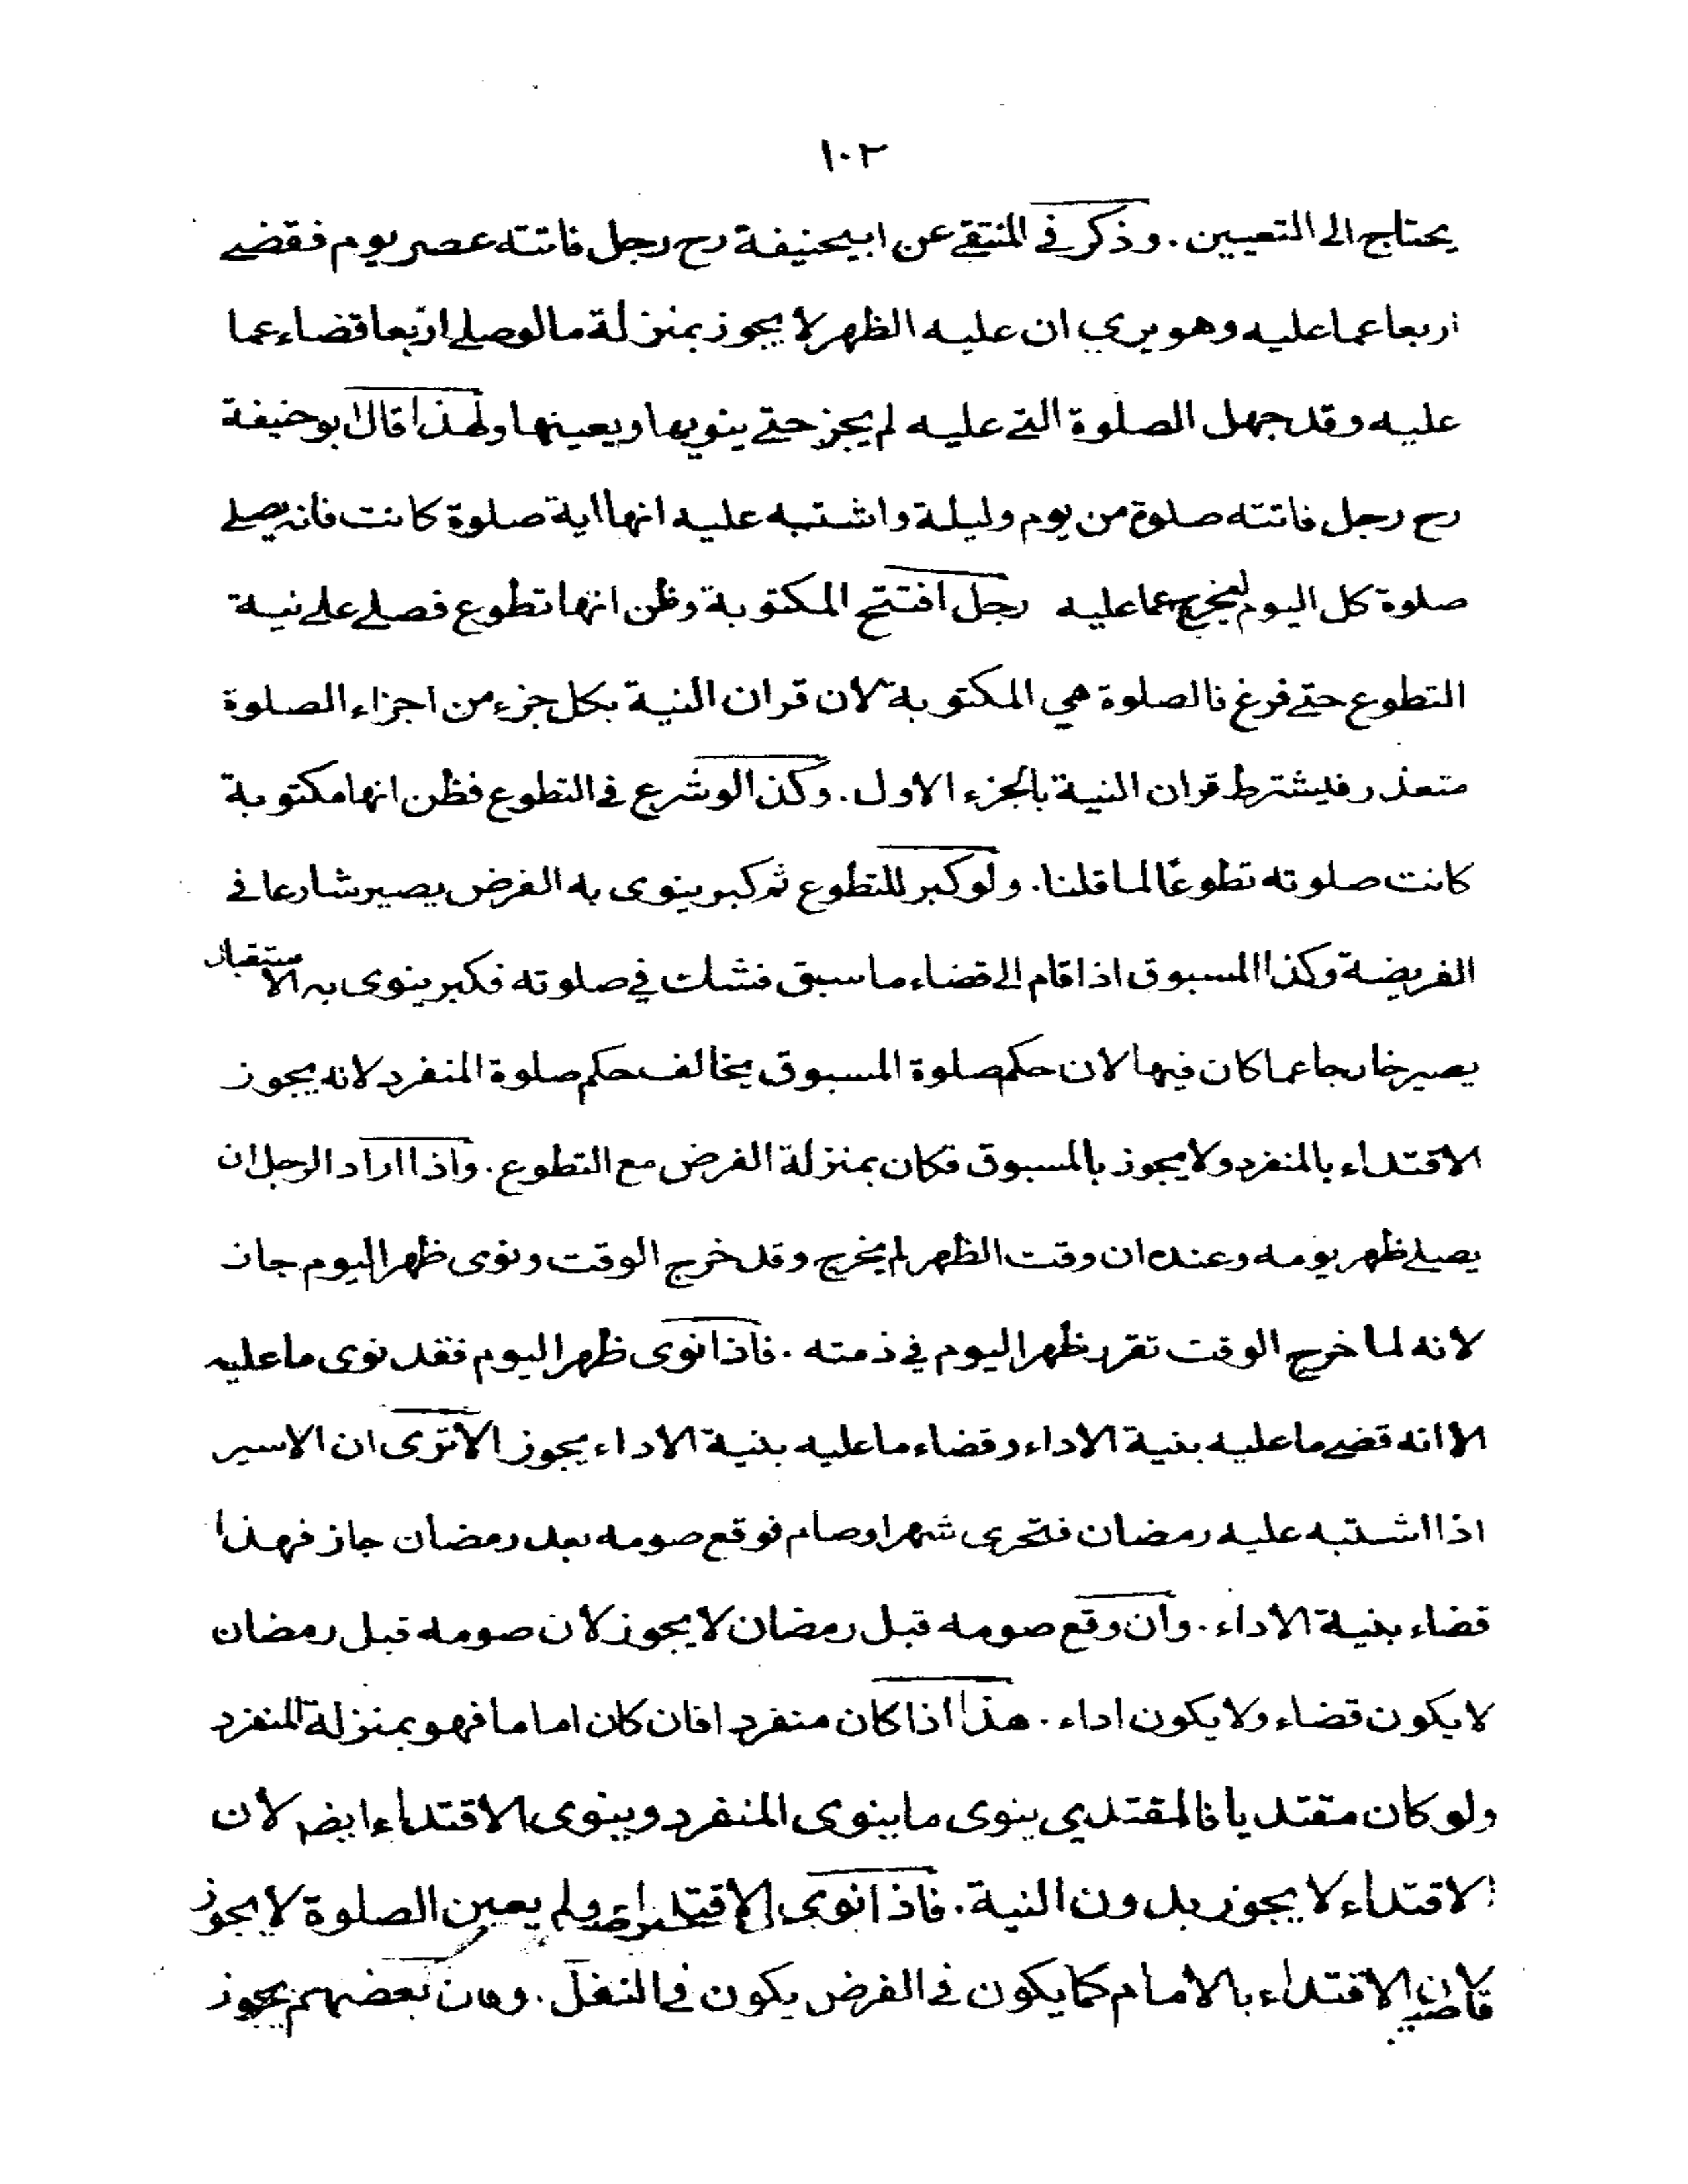 ١٠٢
يحتاج الى التعيين . وذكر في المنتقے عن ابيحنيفة رح رجل فاتته عصر يوم فقضے
اربعا عما عليه وهو يرى ان عليه الظهر لا يجوز بمنزلة ما لو صلے اربعا قضاء عما
عليه وقد جهل الصلوة التے عليه لم يجز حتے ينويها ويعينها ولهذا قال ابو حنيفة
رح رجل فاتته صلوة من يوم وليلة واشتبه عليه انها اية صلوة كانت فانه يصلے
صلوة كل اليوم ليخرج عما عليه رجل افتتح المكتوبة وظن انها تطوع فصلے علے نية
التطوع حتے فرغ فالصلوة هي المكتوبة لان قران النية بكل جزء من اجزاء الصلوة
متعذر فيشترط قران النية بالجزء الاول . وكذا لو شرع في التطوع فظن انها مكتوبة
كانت صلوته تطوعًا لما قلنا . ولو كبر للتطوع ثم كبر ينوى به الفرض يصير شارعا في
الفريضة وكذا المسبوق اذا قام الى قضاء ما سبق فشك في صلوته فكبر ينوى به الاستقبال
يصير خارجا عما كان فيها لان حكم صلوة المسبوق يخالف حكم صلوة المنفرد لانه يجوز
الاقتداء بالمنفرد ولا يجوز بالمسبوق فكان بمنزلة الفرض مع التطوع . واذا اراد الرجل ان
يصلے ظهر يومه وعنده ان وقت الظهر لم يخرج وقد خرج الوقت ونوى ظهر اليوم جاز
لانه لما خرج الوقت تقرر ظهر اليوم في ذمته . فاذا نوى ظهر اليوم فقد نوى ما عليه
الا انه قضے ما عليه بنية الاداء وقضاء ما عليه بنية الاداء يجوز الا ترى ان الاسير
اذا اشتبه عليه رمضان فتحرى شهرا وصام فوقع صومه بعد رمضان جاز فهذا
قضاء بنية الاداء . وان وقع صومه قبل رمضان لا يجوز لان صومه قبل رمضان
لا يكون قضاء ولا يكون اداء . هذا اذا كان منفردا فان كان اماما فهو بمنزلة المنفرد
ولو كان مقتديا فالمقتدي ينوى ما ينوى المنفرد وينوى الاقتداء ايضا لان
الاقتداء لا يجوز بدون النية . فاذا نوى الاقتداء ولم يعين الصلوة لا يجوز
لان الاقتداء بالامام كما يكون في الفرض يكون في النفل . وقال بعضهم يجوز